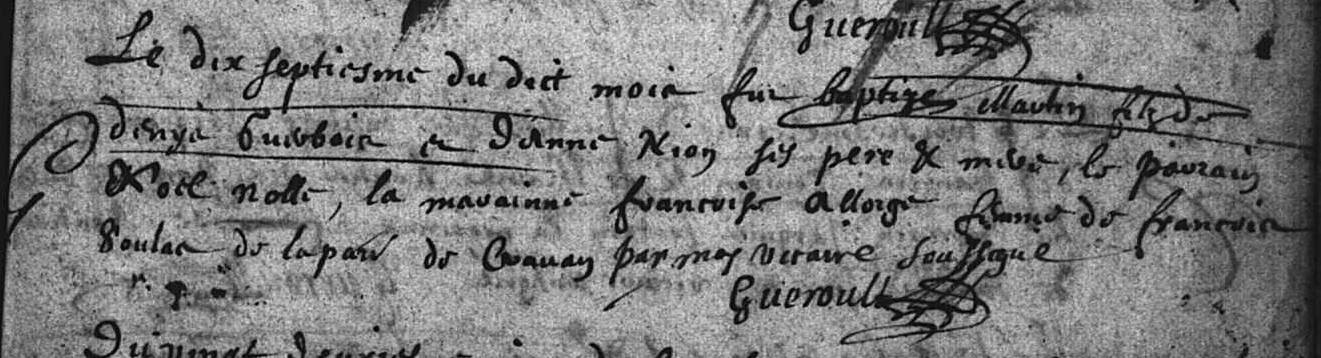 Gueroult
Le dix septiesme du dict mois fut baptize Martin filz de
denys Guerbois et Jeanne Nion ses pere & mere, le parain
Noel nolle, la maraine francoise Alorge femme de francois
de la par de par moy vicaire soussigne
Gueroult